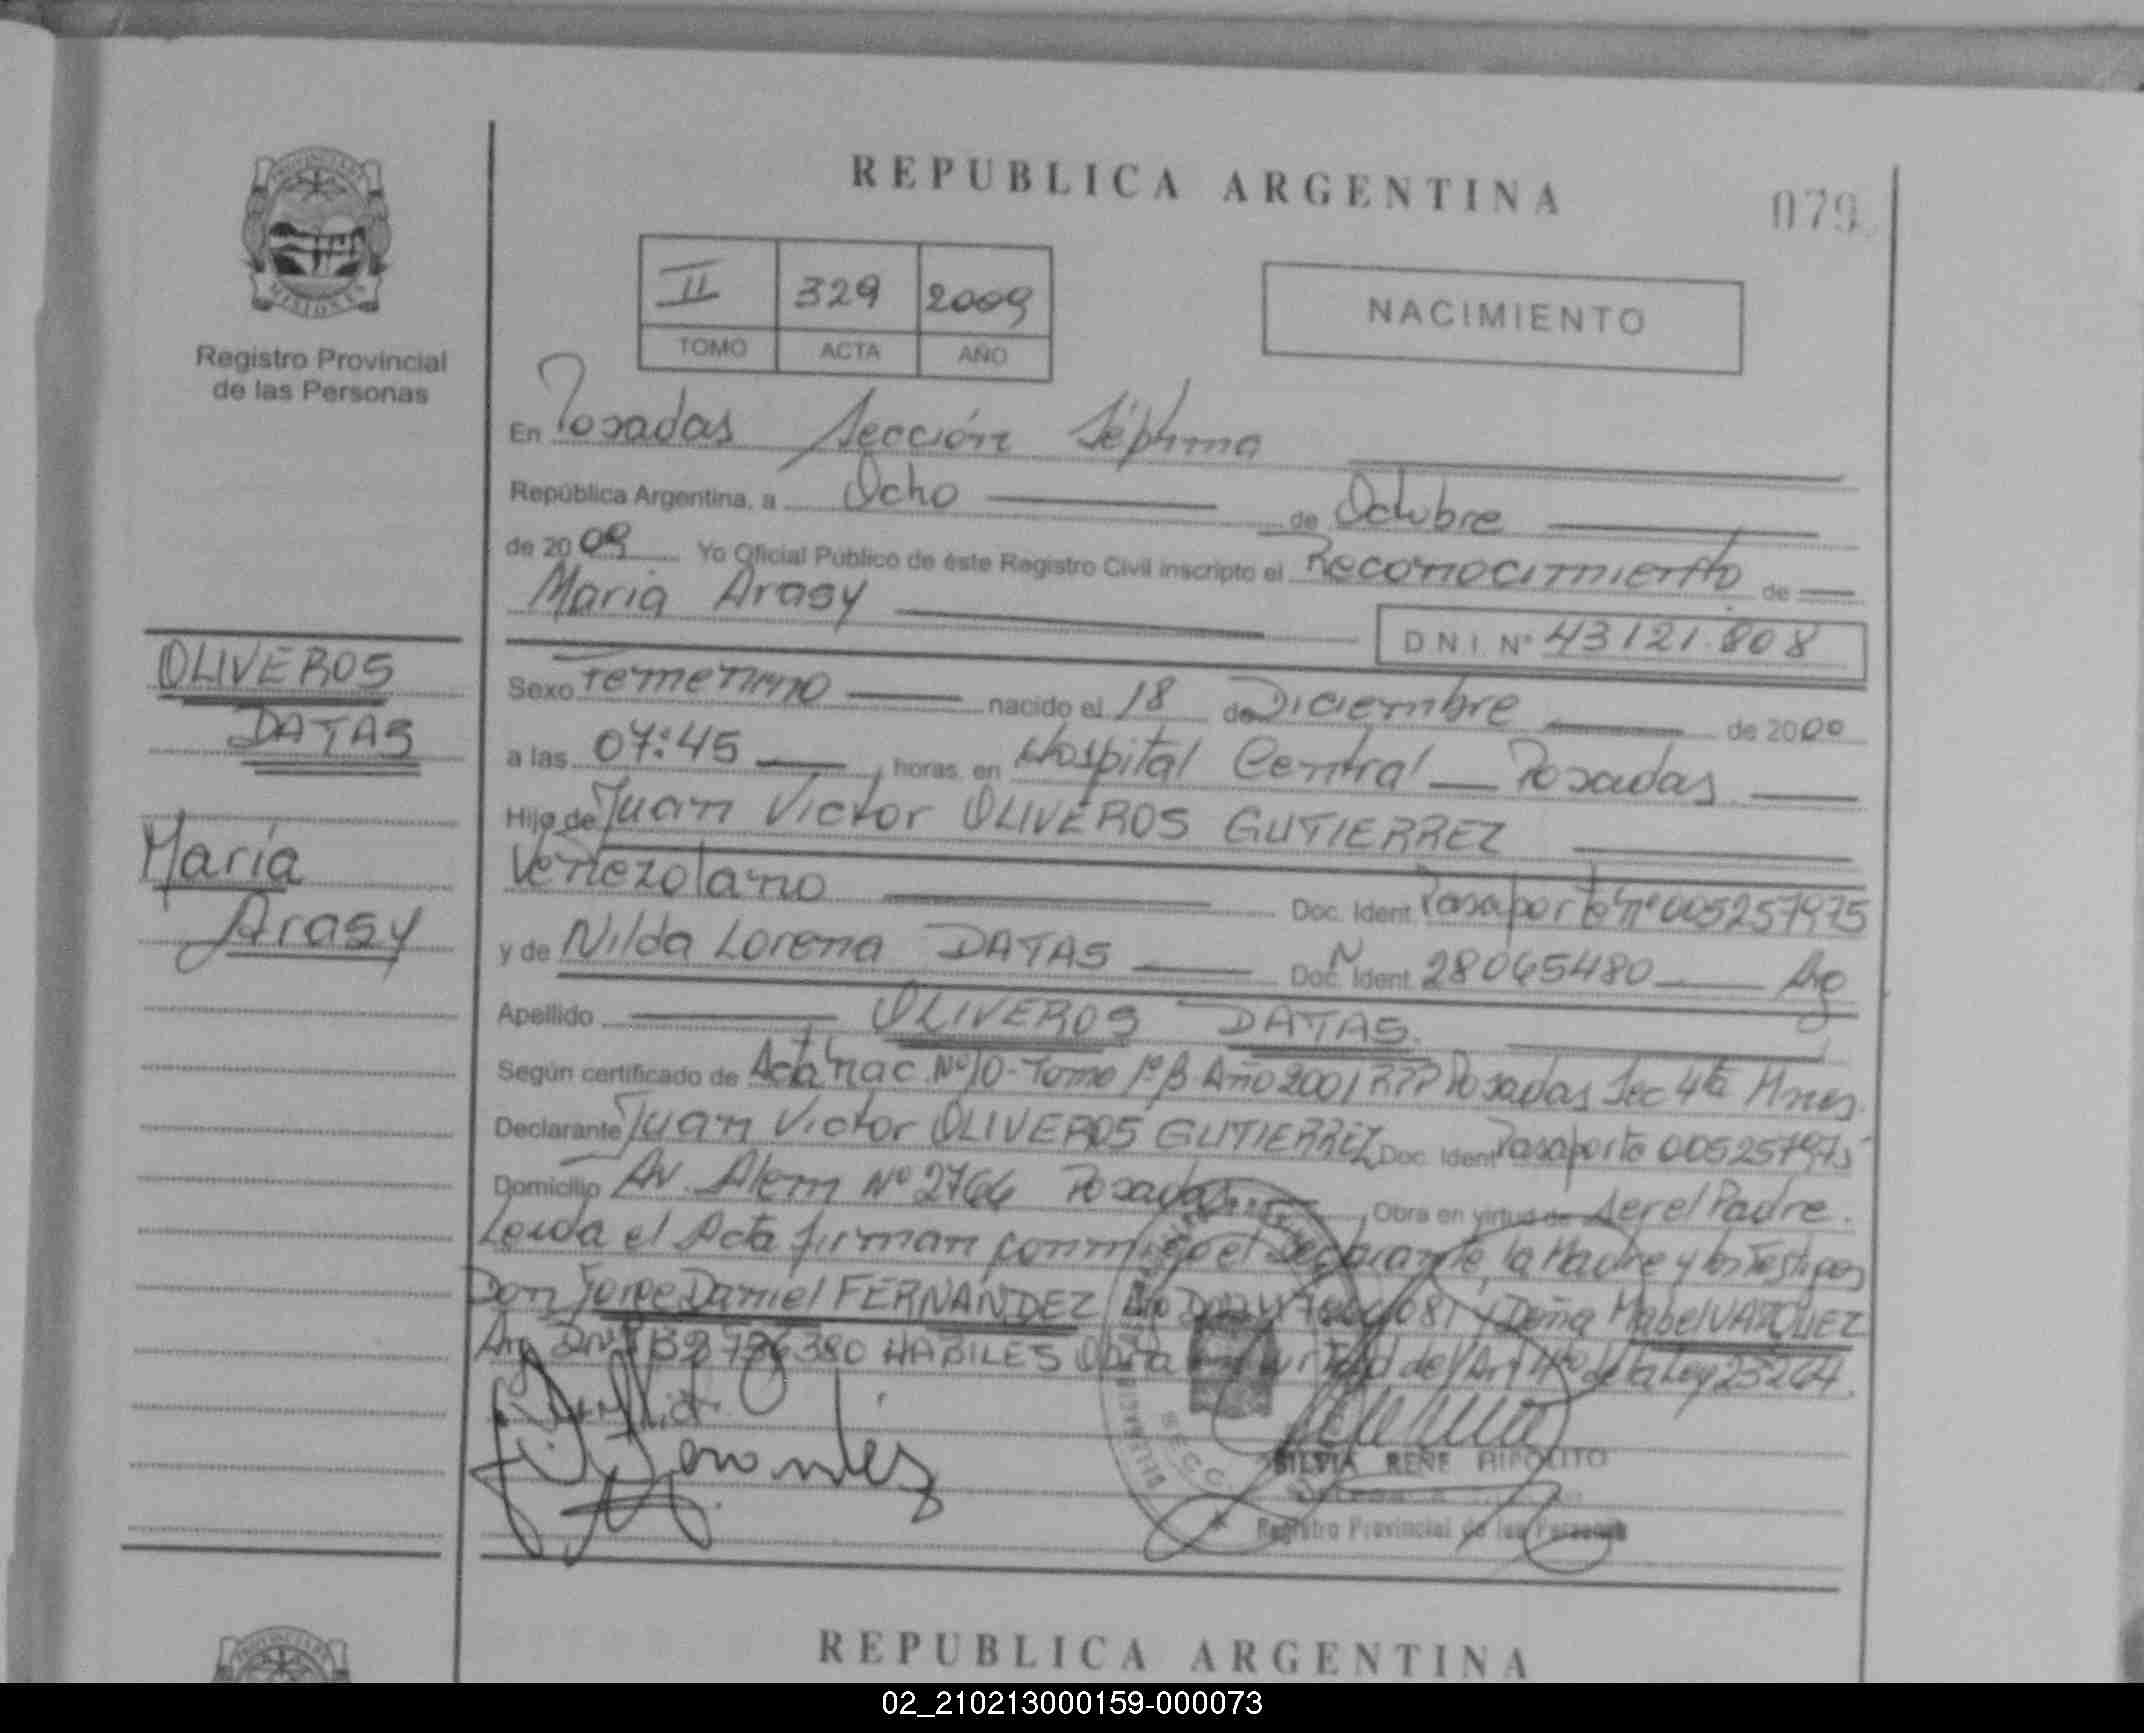 REPUBLICA ARGENTINA
079
PROVINCIA DE
MISIONES
Registro Provincial
de las Personas
II 329 2009
TOMO ACTA AÑO
NACIMIENTO
En Posadas Sección Séptima
República Argentina, a Ocho de Octubre
de 2009 Yo Oficial Público de éste Registro Civil inscripto el Reconocimiento de
Maria Arasy
D N I. N° 43121.808
OLIVEROS
DATAS
María
Arasy
Sexo Femenino nacido el 18 de Diciembre de 2000
a las 07:45, horas, en Hospital Central Posadas
Hijo de Juan Victor OLIVEROS GUTIERREZ
Venezolano Doc. Ident. Pasaporte nº 005257975
y de Nilda Lorena DATAS Doc. N Ident. 28065480 Arg
Apellido OLIVEROS DATAS.
Según certificado de Acta nac. Nº10-Tomo 1º B Año 2001 RPP Posadas Sec 4ta Mnes.
Declarante Juan Victor OLIVEROS GUTIERREZ Doc. Ident Pasaporte 005257975
Domicilio Av. Alem Nº 2766 Posadas, Obra en virtud de Ser el Padre.
Leida el Acta firman conmigo el Declarante, la Madre y los Testigos
Don Jorge Daniel FERNANDEZ Arg y Doña Mabel VAZQUEZ
Arg DNI HABILES Obra en virtud del Art de la Ley 23264.
Fernandez
SECC.
SILVIA RENE RIPOLITO
Registro Provincial de las Personas
REPUBLICA ARGENTINA
02_210213000159-000073